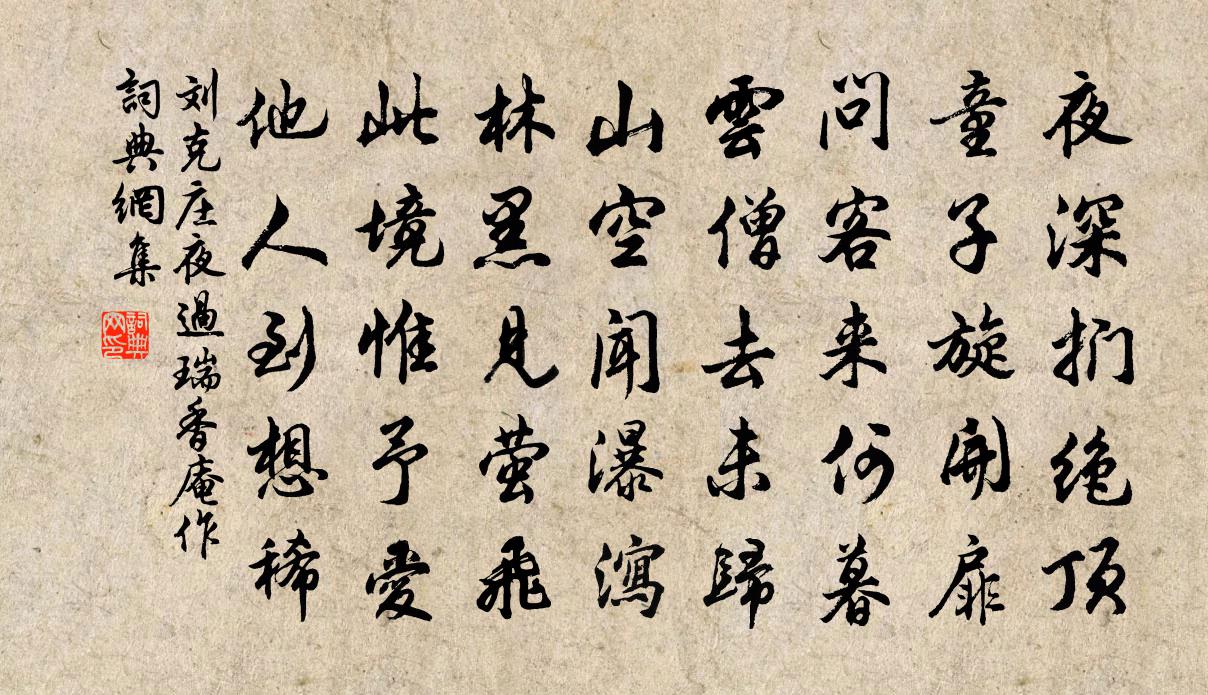 夜深扪绝顶
童子旋开扉
问客来何暮
雲僧去未歸
山空闻瀑瀉
林黑见萤飛
此境惟予愛
他人到想稀
刘克庄夜過瑞香庵作
詞典網集
詞典网印